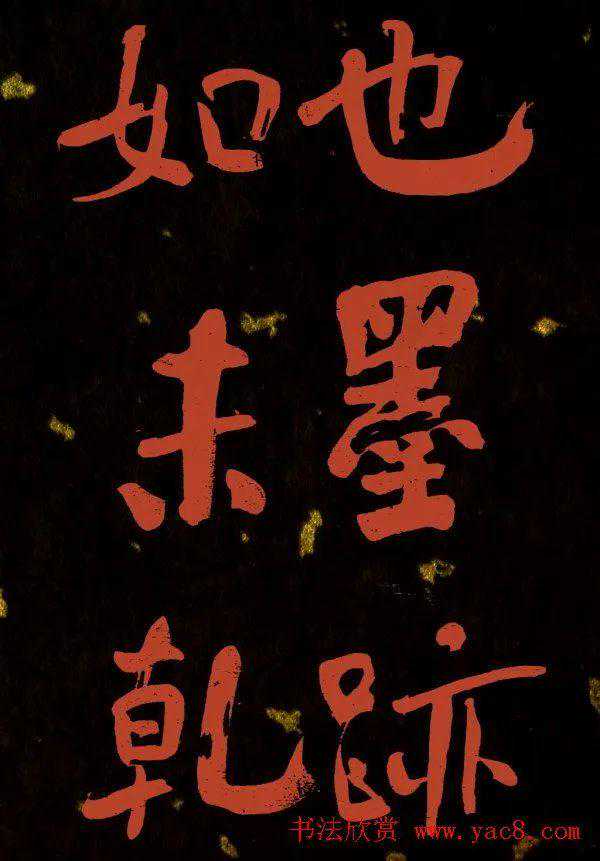 也墨跡
如未乾
书法欣赏 www.yac8.com